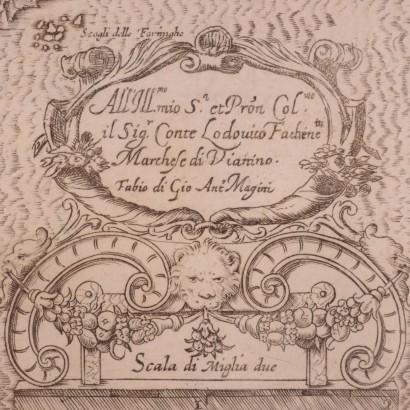 Scogli delle Formighe
All'Ill.mo mio S.r et Pròn Col.mo
il Sig.r Conte Lodovico Fachene.tti
Marchese di Vianino.
Fabio di Gio Ant.o Magini
Scala di Miglia due
1